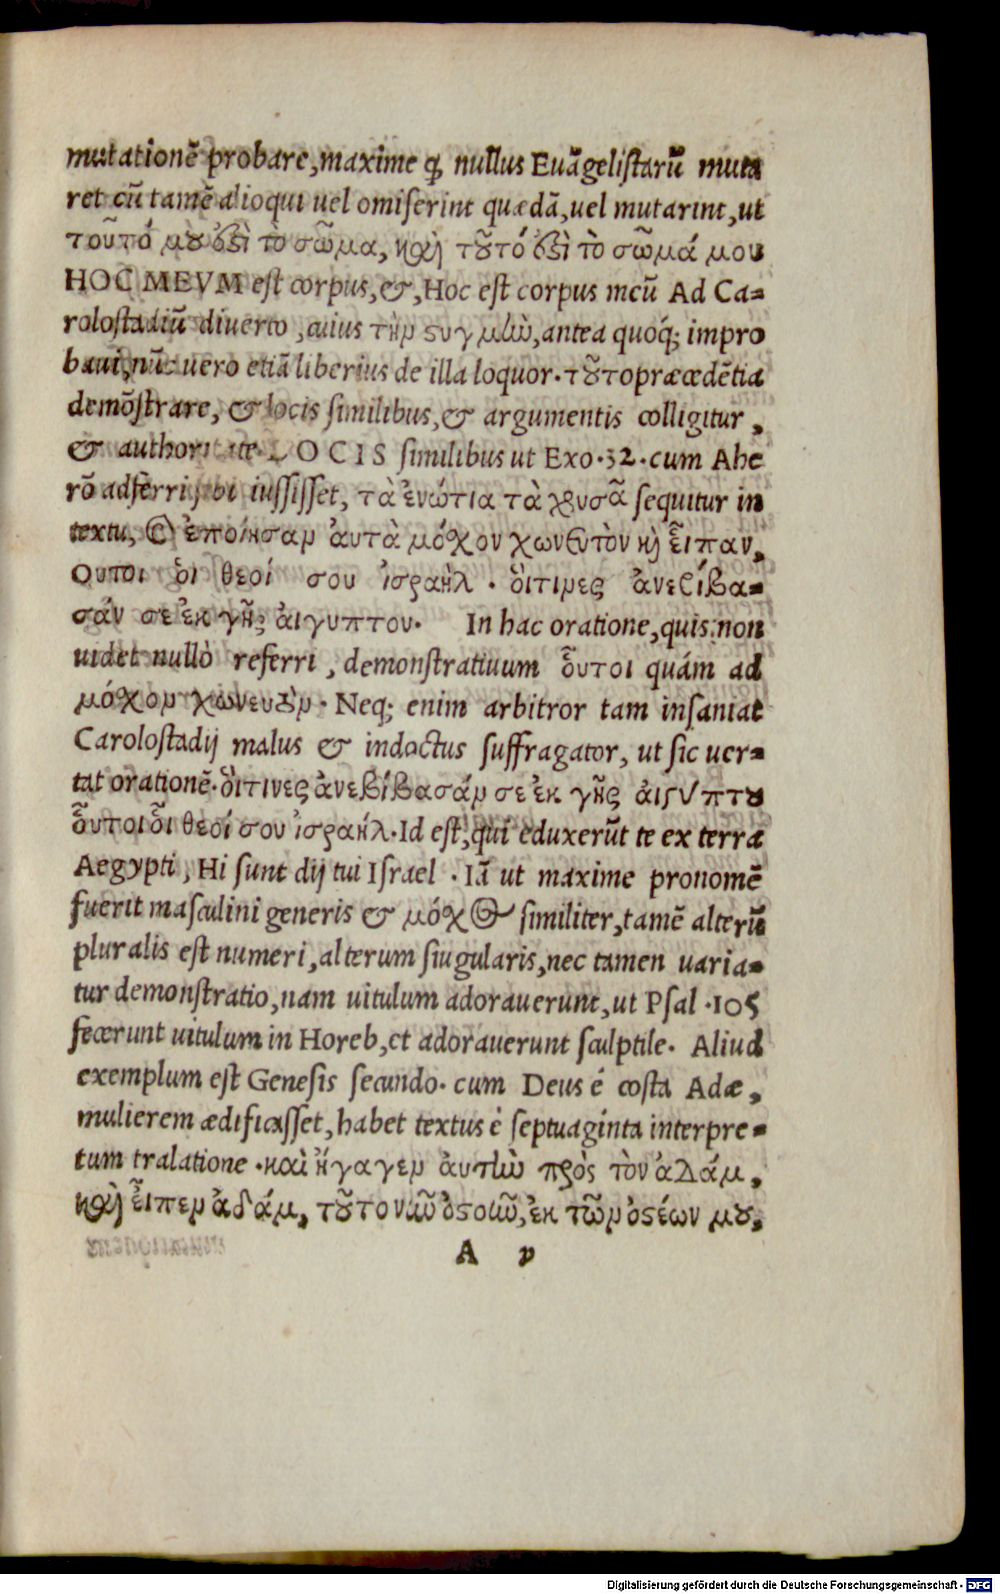 mutationē probare, maxime ꝙ nullus Euāgelistarū muta
ret cū tamē alioqui uel omiserint quædā, uel mutarint, ut
τουτό μȣ ἐϛὶ τὸ σῶμα, καὶ τȣ͂τό ἐϛὶ τὸ σῶμά μου
HOC MEVM est corpus, &, Hoc est corpus meū Ad Ca-
rolostadiū diuerto, cuius τὴν ϛυγμὼ, antea quoq; impro
baui, nūc uero etiā liberius de illa loquor. τȣ͂το præcedētia
demōstrare, & locis similibus, & argumentis colligitur,
& authoritate. LOCIS similibus ut Exo. 32. cum Ahe
rō adferri sibi iussisset, τὰ ἐνώτια τὰ χρυσᾶ sequitur in
textu, Ⓒ ἐποίησαν ἀυτὰ μόχον χωνευτὸν κὶ εἶπαν,
Ουτοι ὁι θεοί σου ἰσραὴλ . ὅιτινες ἀνεβίβα-
σάν σε ἐκ γῆς ἀιγυπτου. In hac oratione, quis non
uidet nullò referri, demonstratiuum οὗτοι quám ad
μόχον χωνευτὸν. Neq; enim arbitror tam insaniat
Carolostadij malus & indoctus suffragator, ut sic uer-
tat orationē. ὅιτινες ἀνεβίβασάν σε ἐκ γῆς ἀιγύπτȣ
οὗτοι οἷ θεοί σου ἰσραήλ. Id est, qui eduxerūt te ex terra
Aegypti, Hi sunt dij tui Israel . Iā ut maxime pronomē
fuerit masculini generis & μόχος similiter, tamē alterū
pluralis est numeri, alterum siugularis, nec tamen uaria-
tur demonstratio, nam uitulum adorauerunt, ut Psal .105
fecerunt uitulum in Horeb, et adorauerunt sculptile. Aliud
exemplum est Genesis secundo. cum Deus é costa Adæ,
mulierem ædificasset, habet textus è septuaginta interpre-
tum tralatione .καὶ ἤγαγεν ἀυτὼ πρὸς τὸν ἀδάμ,
καὶ εἶπεν ἀδάμ, τȣ͂το νιῦ ὀϛοιῦ, ἐκ τῶν ὀϛέων μȣ,
A v